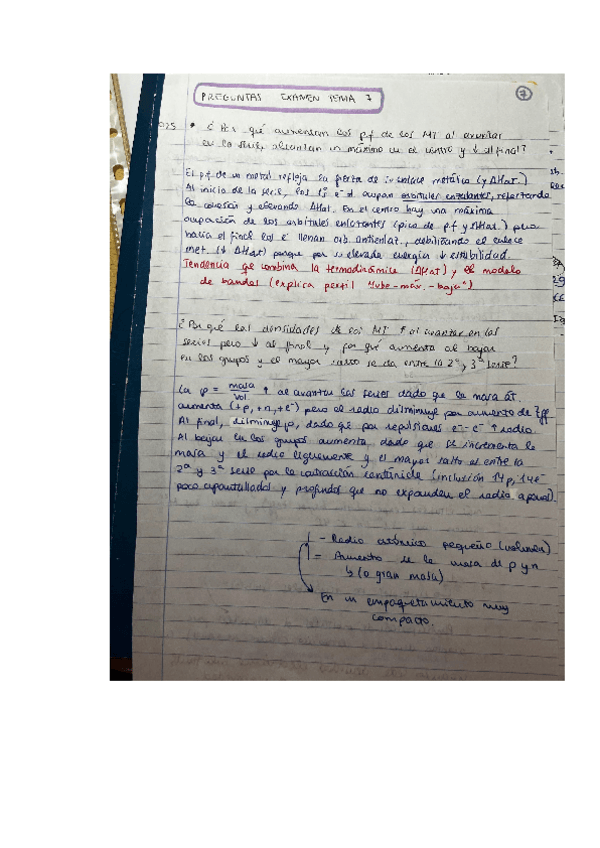 PREGUNTAS EXAMEN TEMA 7
7
025 • ¿Por qué aumentan los p.f de los MT al avanzar
en la serie, alcanzan un máximo en el centro y ↓ al final?
El p.f de un metal refleja la fuerza de su enlace metálico (y ΔHat.)
Al inicio de la serie, los 1os e- d ocupan orbitales enlazantes, reforzando
la cohesión y elevando ΔHat. En el centro hay una máxima
ocupación de los orbitales enlazantes (pico de p.f y ΔHat.) pero
hacia el final los e- llenan orb. antienlazat., debilitando el enlace
met. (↓ ΔHat) porque por su elevada energía ↓ estabilidad.
Tendencia que combina la termodinámica (ΔHAT) y el modelo
de bandas (explica perfil "sube-máx.-baja")
¿Por qué las densidades de los MT ↑ al avanzar en las
series pero ↓ al final y por qué aumenta al bajar
en los grupos y el mayor salto se da entre la 2ª y 3ª serie?
La ρ = masa/vol. ↑ al avanzar las series dado que la masa át.
aumenta (+p, +n, +e-) pero el radio disminuye por aumento de Zeff
Al final, disminuye ρ, dado que por repulsiones e-–e- ↑ radio.
Al bajar en los grupos aumenta, dado que se incrementa la
masa y el radio ligeramente y el mayor salto es entre la
2ª y 3ª serie por la contracción lantánida (inclusión 14p, 14e-
poco apantallados y profundos que no expanden el radio apenas).
- Radio atómico pequeño (volumen)
- Aumento de la masa de p y n
↳ (o gran masa)
En un empaquetamiento muy
compacto.